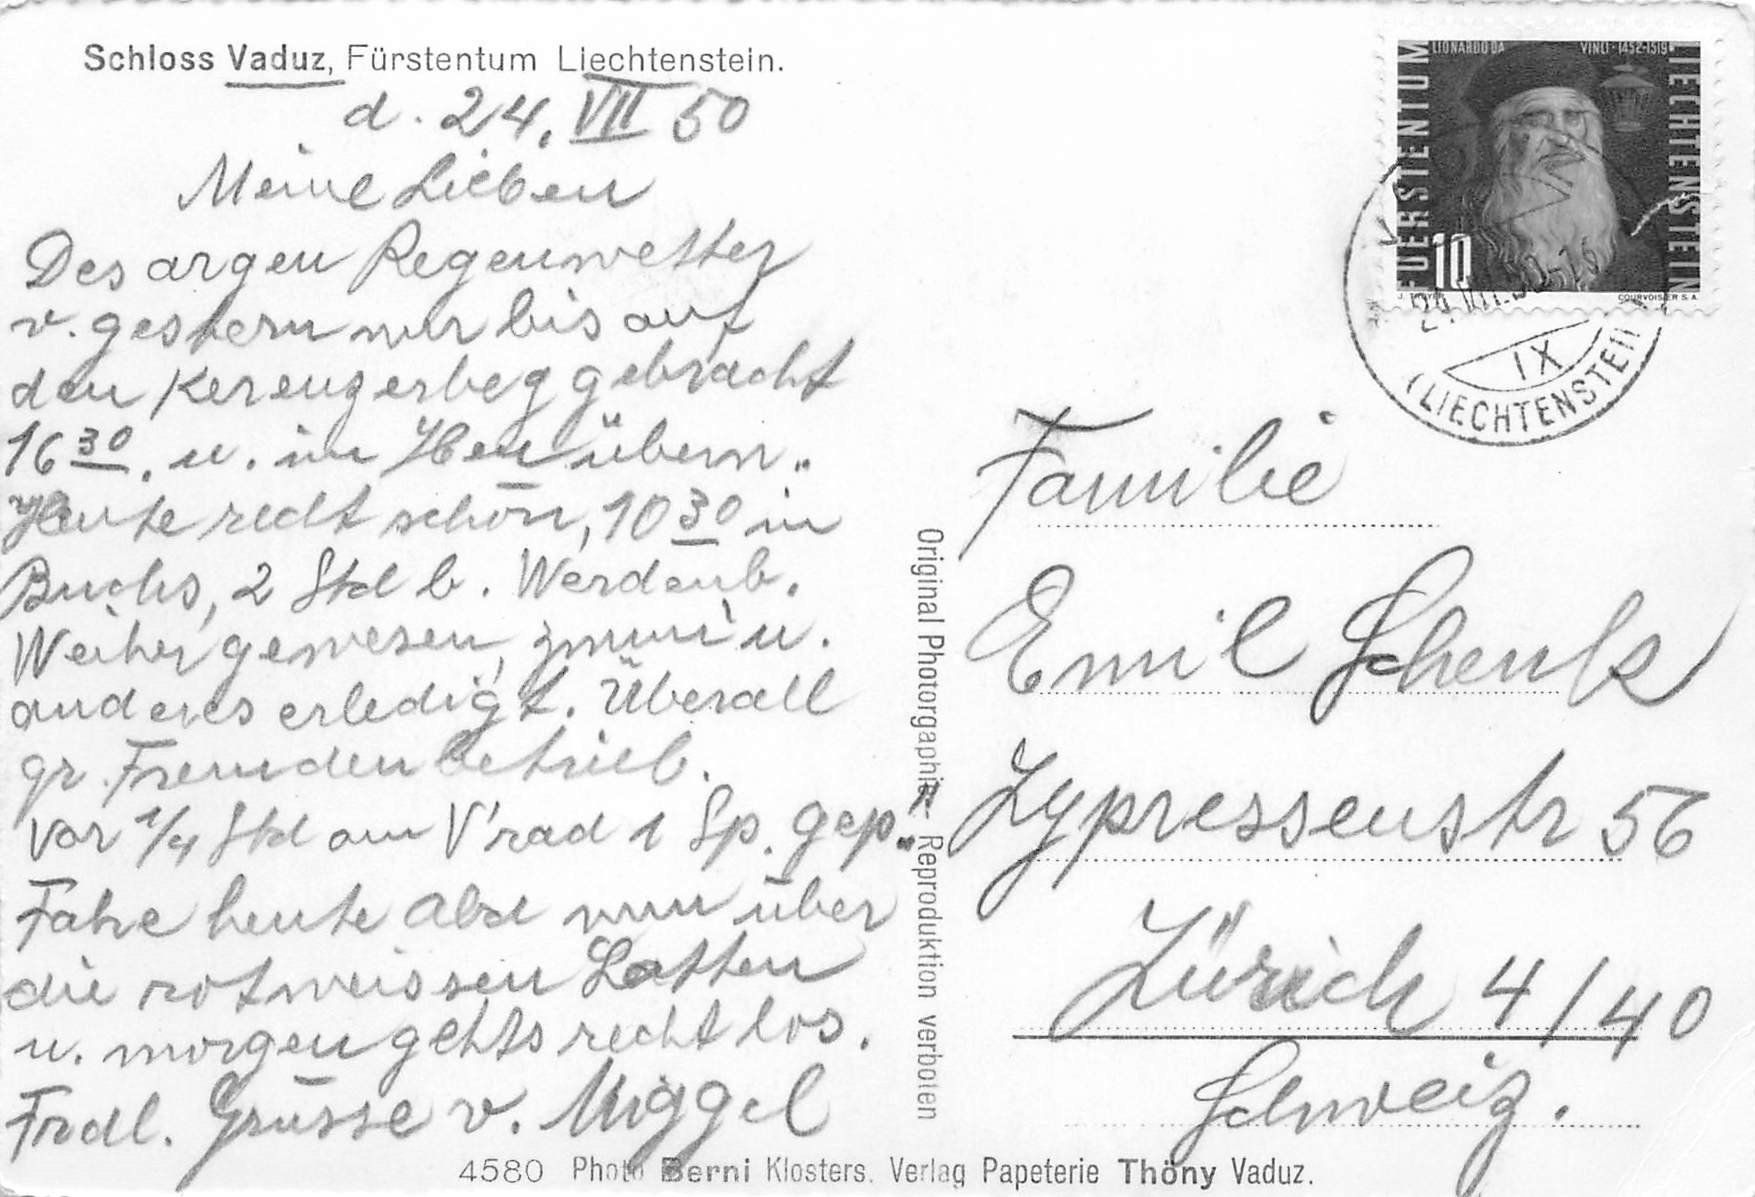 Schloss Vaduz, Fürstentum Liechtenstein.
d. 24. VII 50
Meine Lieben
Des argen Regenwetter
v. gestern nur bis auf
den Kerenzerbeg gebracht
16 30. u. im Heu übern.
Heute recht schön, 10 30 in
Buchs, 2 Std b. Werdenb.
Weiher gewesen, u.
anderes erledigt. Überall
gr. Fremdenbetrieb.
Vor 1/4 Std am V'rad 1 Sp. gep.
Fahre heute Abd nun über
die rotweissen Latten
u. morgen gehts recht los.
Frdl. Grüsse v. Miggel
LIONARDO DA VINCI · 1452-1519
FUERSTENTUM
LIECHTENSTEIN
10
COURVOISIER S.A.
24.VII.50-16
IX
(LIECHTENSTEIN)
Familie
Emil Schenk
Zypressenstr 56
Zürich 4/40
Schweiz.
Original Photorgaphie. Reproduktion verboten
4580 Photo Berni Klosters. Verlag Papeterie Thöny Vaduz.